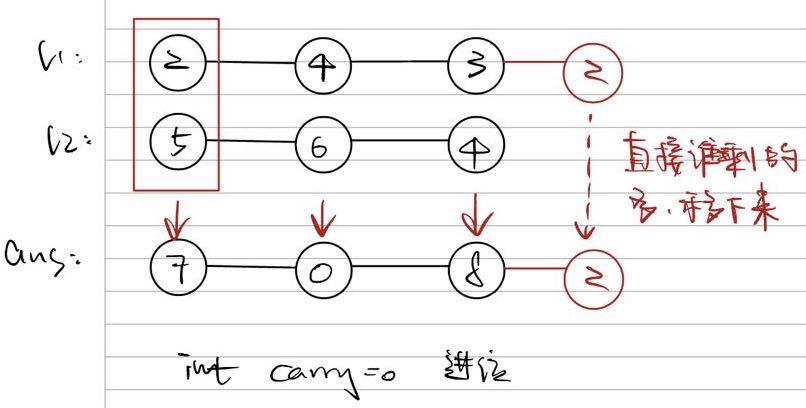 l1: 2 4 3 2
l2: 5 6 4
直接谁剩的
多,移下来
ans: 7 0 8 2
int carry=0 进位